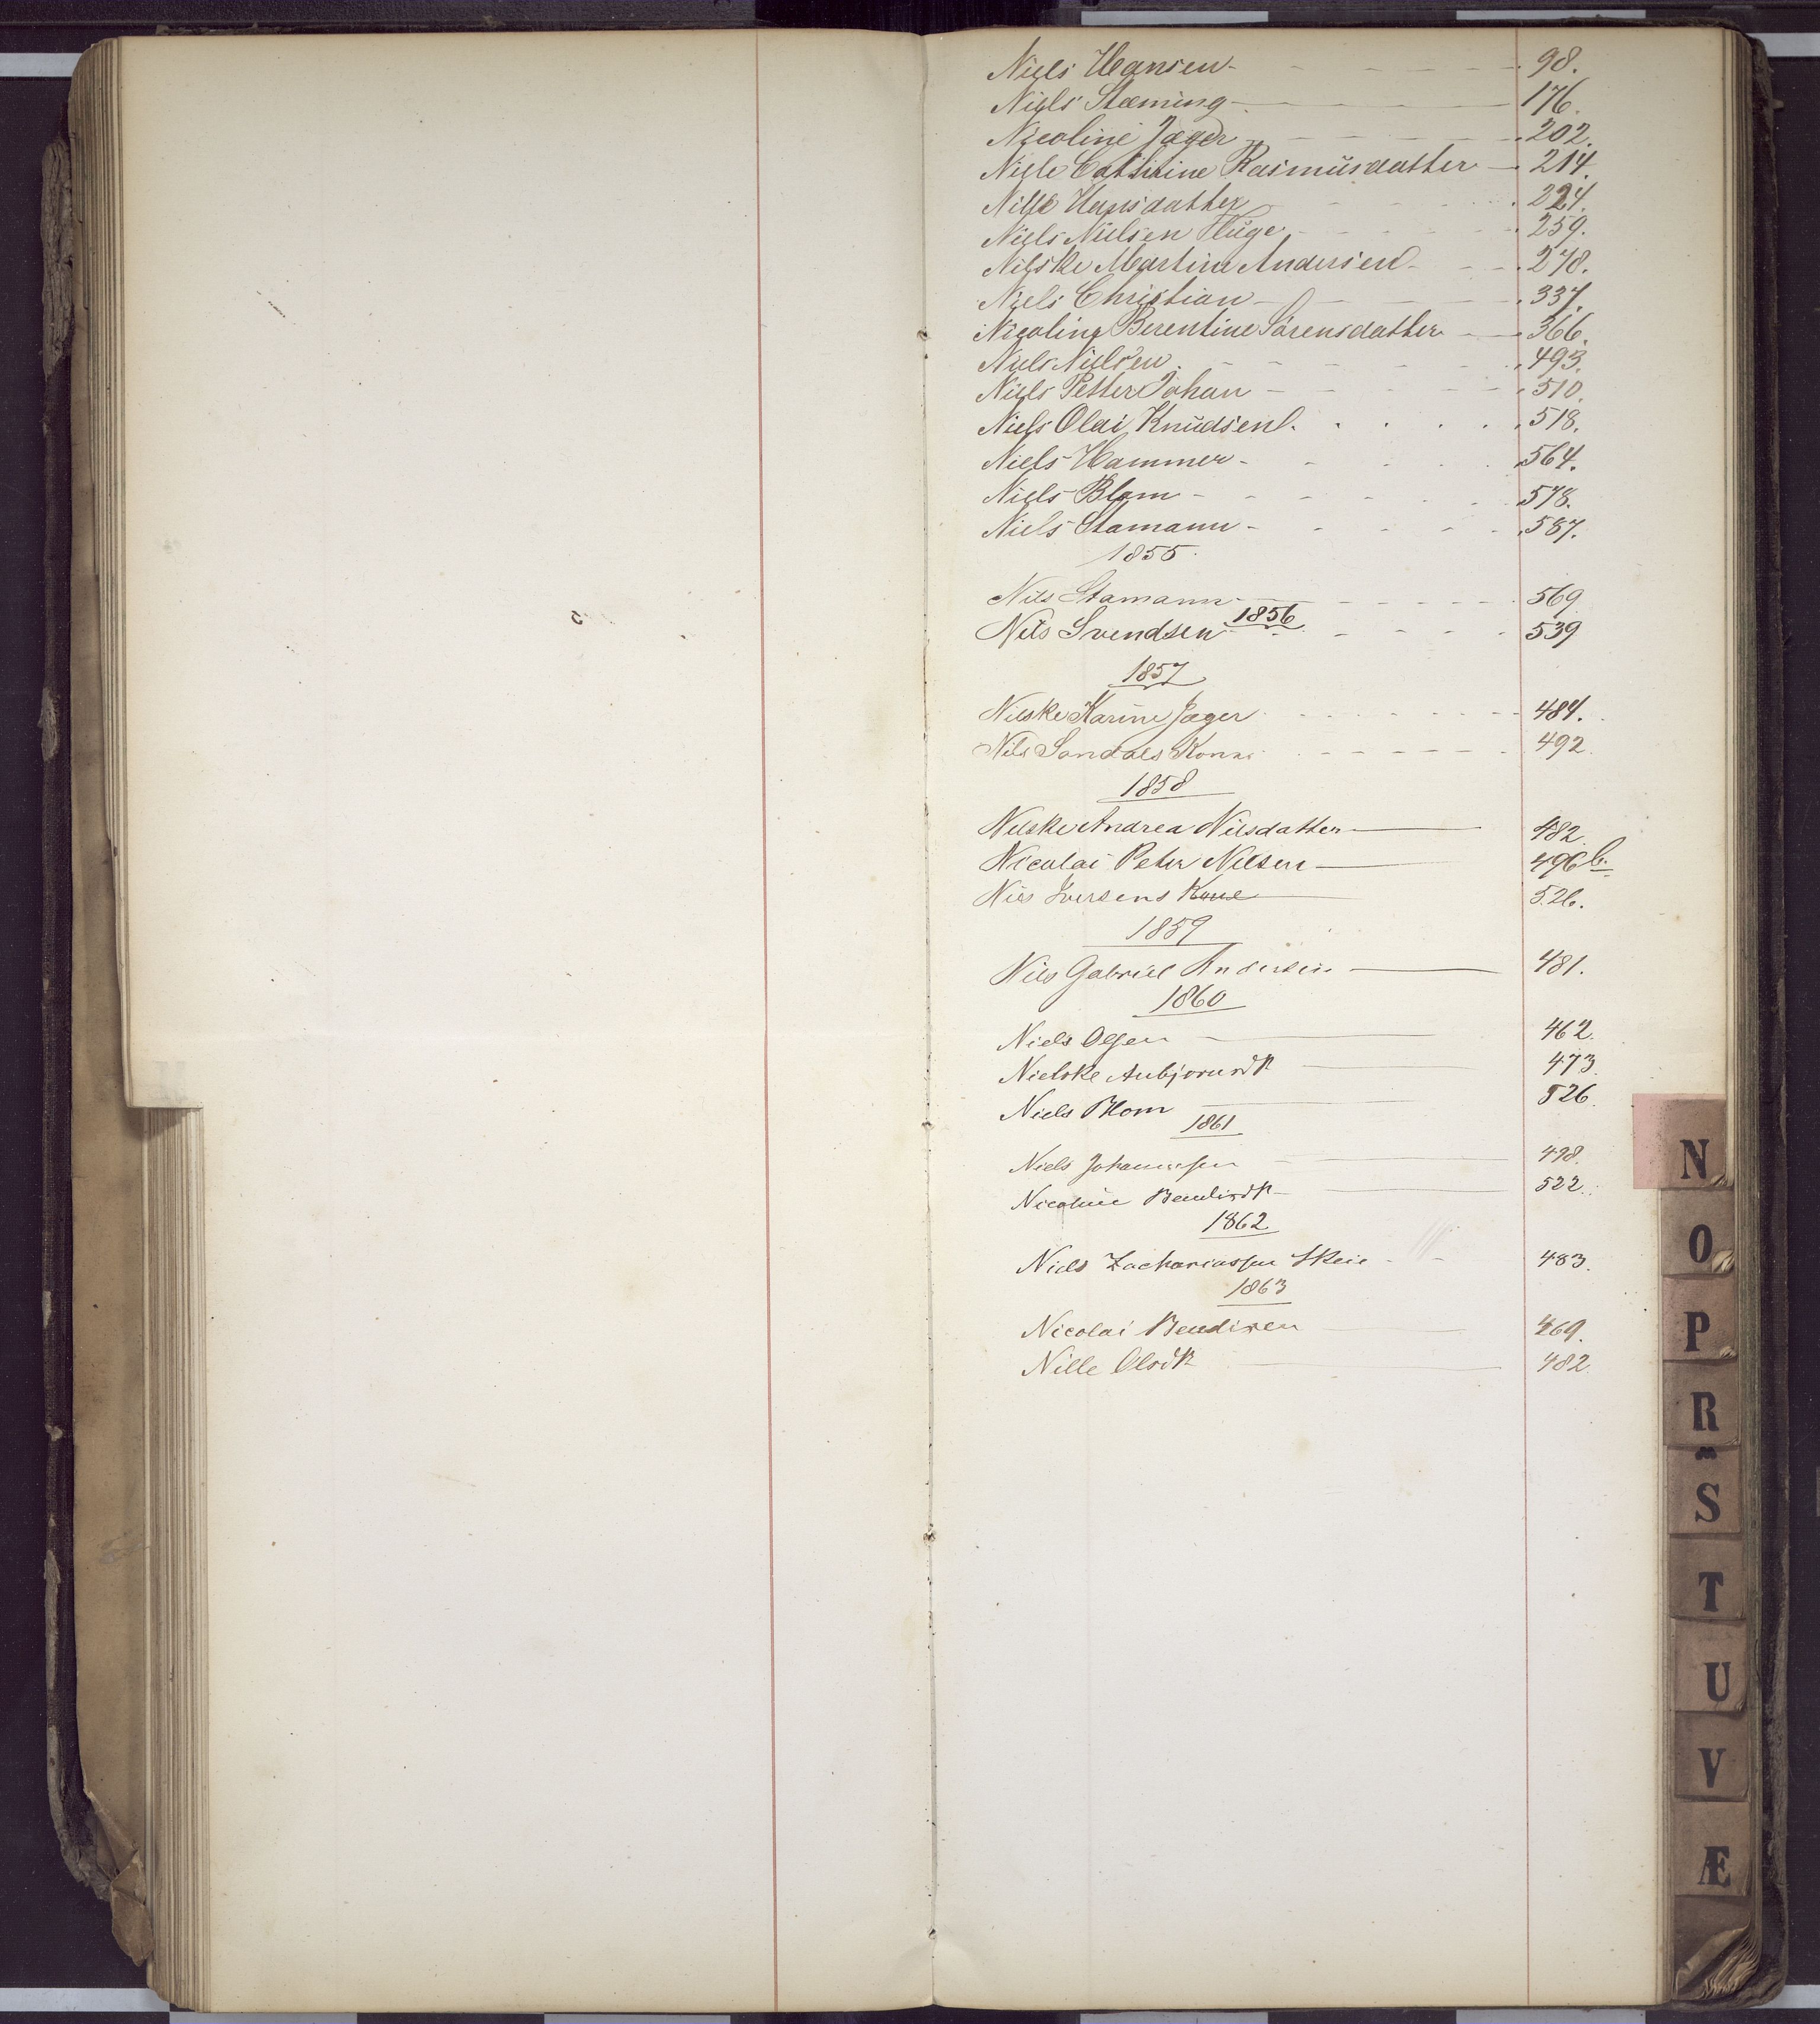 Niels Hansen 98.
Niels Stæming 176.
Nicoline Jæger 202.
Niele Cathrine Rasmüsdatter 214.
Nille Hansdatter 224.
Niels Nielsen Flüge 259.
Nilske Martine Andersen 278.
Niels Christian 337.
Nicoline Berentine Sörensdatter 366.
Niels Nielsen 493.
Niels Petter Johan 510.
Niels Olai Knüdsen 518.
Niels Hammer 564.
Niels Blom 578.
Niels Stamann 587.
1855.
Nils Stamann 569
1856
Nils Svendsen 539
1857
Nilske Karine Jæger 484.
Nils Sandals Kone 492.
1858
Nilske Andrea Nilsdatter 482
Nicolai Peter Nilsen 496 b.
Nils Iversens Kone 526.
1859
Nils Gabriel Andersen 481.
1860
Niels Olsen 462.
Nielske Aubjornsdtr 473
Niels Blom 526.
1861
Niels Johannesen 498.
Nicoline Bendixdtr 522.
1862
Niels Zachariassen Skeie 483.
1863
Nicolai Bendixen 469.
Nille Olsdtr 482.
N
O
P
R
S
T
U
V
Æ